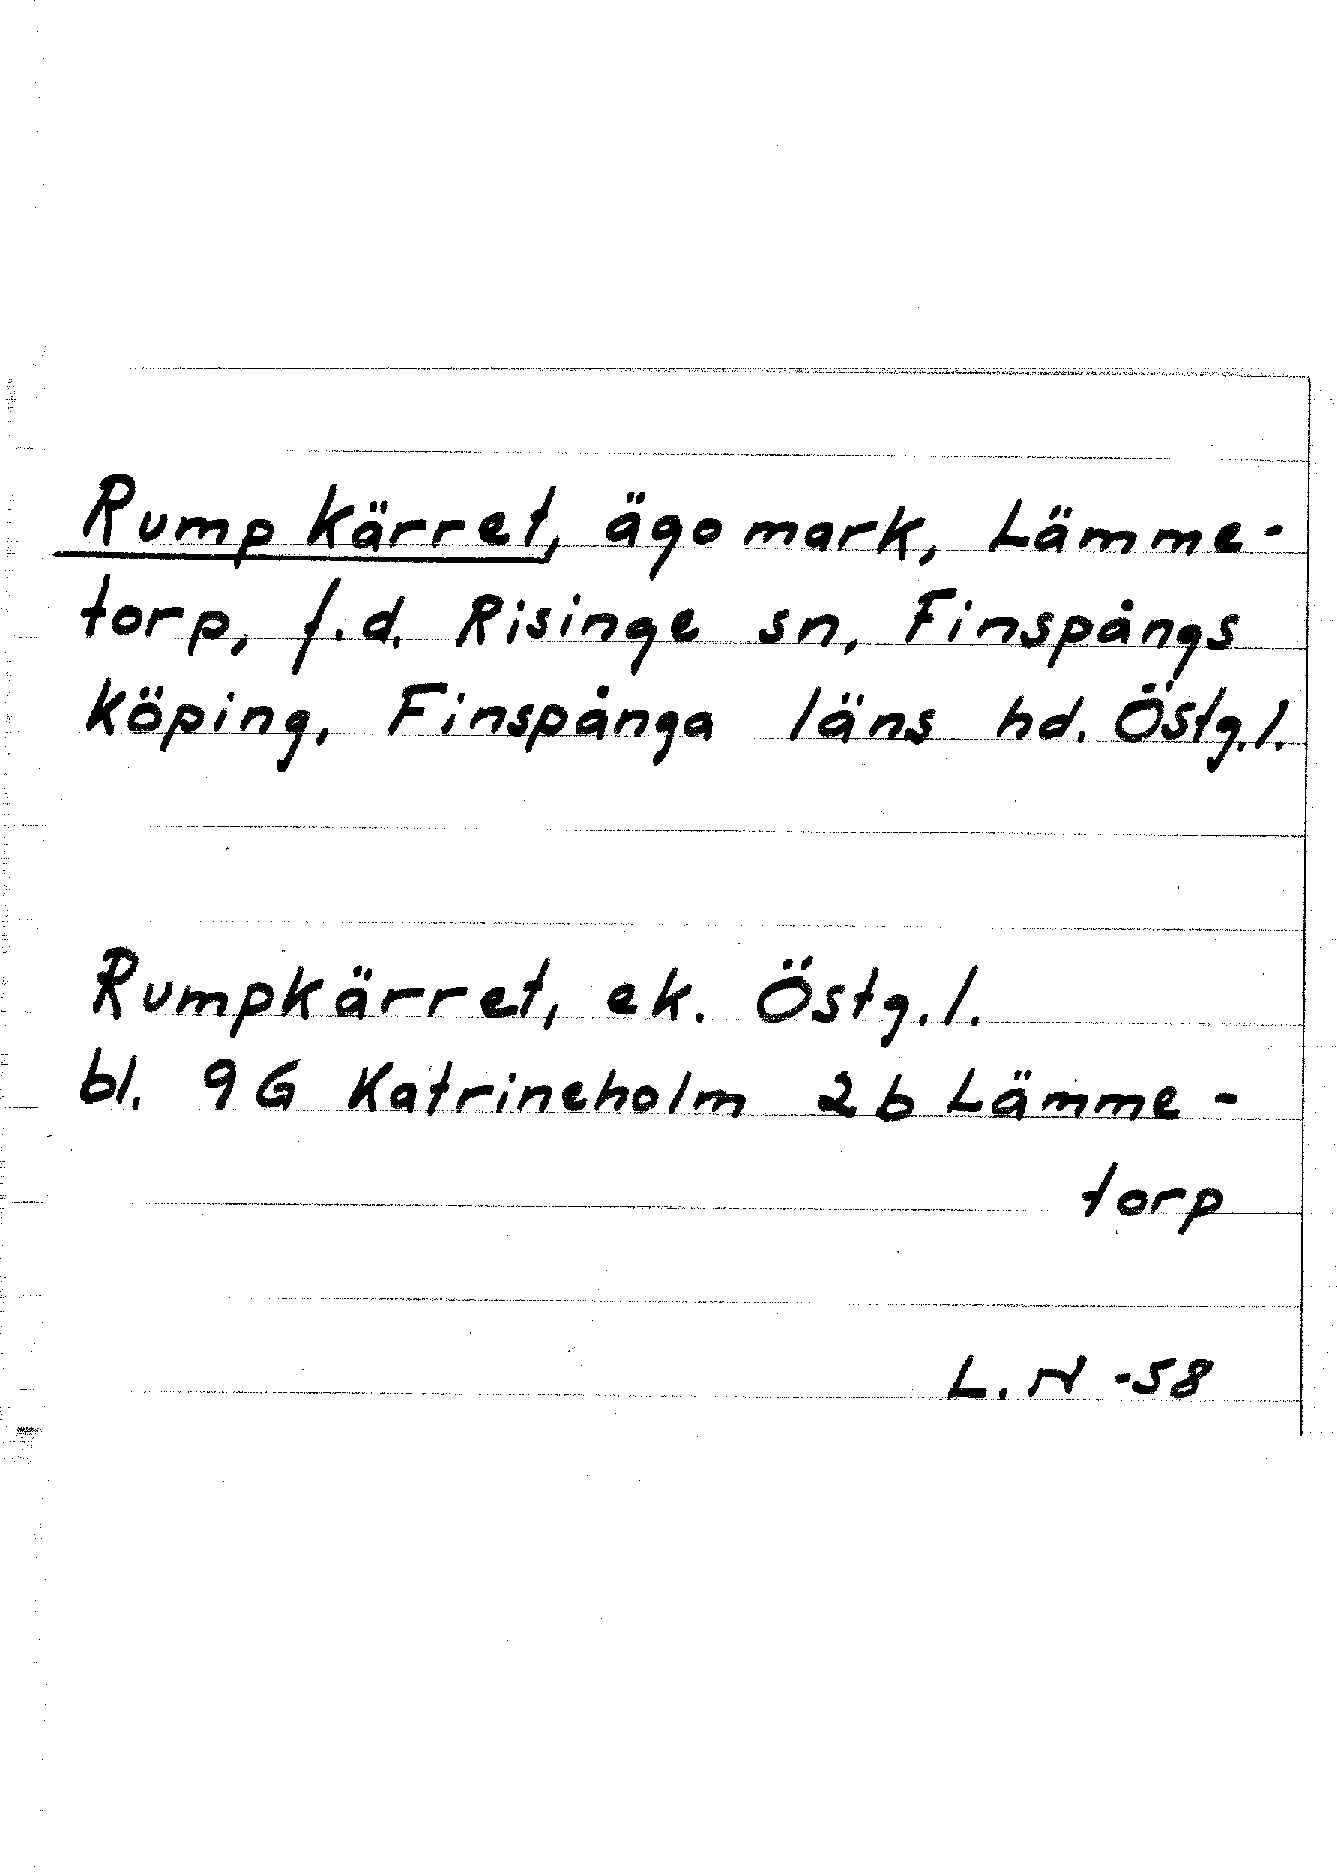 Rumpkärret, ägomark, Lämme-
torp, f.d. Risinge sn, Finspångs
köping, Finspånga läns hd. Östg.l.
Rumpkärret, ek. Östg.l.
bl. 9G Katrineholm 2b Lämme-
torp
L. N -58